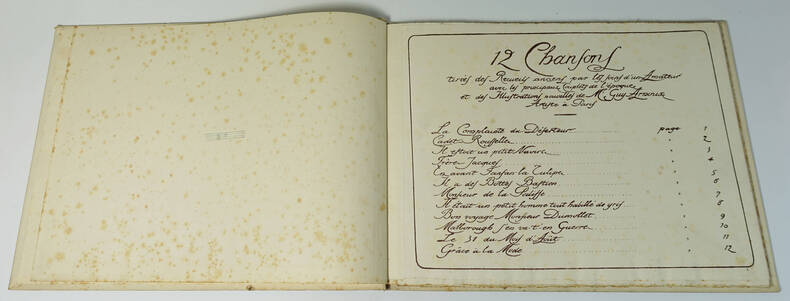 12 Chansons
tirées des Recueils anciens par les soins d'un Amateur
avec les principaux Couplets de l'époque
et des Illustrations nouvelles de M. Guy Arnoux
Artiste à Paris
La Complainte du Déserteur page 1
Cadet Rousselle " 2
Il était un petit Navire " 3
Frère Jacques " 4
En avant Fanfan la Tulipe " 5
Il a des Bottes Bastien " 6
Monsieur de la Palisse " 7
Il était un petit homme tout habillé de gris " 8
Bon voyage Monsieur Dumollet " 9
Malborough s'en va-t-en Guerre " 10
Le 31 du Mois d'Août " 11
Grâce à la Mode " 12